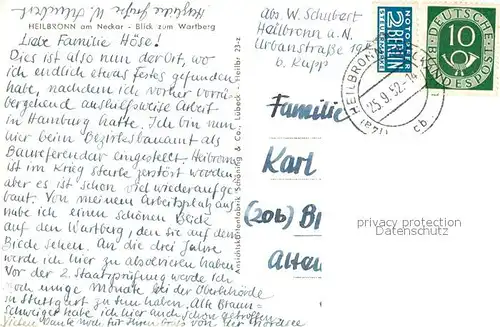 Herzliche Grüße W. Schubert
HEILBRONN am Neckar - Blick zum Wartberg
Liebe Familie Höse!
Dies ist also nun der Ort, wo
ich endlich etwas festes gefunden
habe, nachdem ich vorher vorrü-
bergehend aushilfsweise Arbeit
in Hamburg hatte. Ich bin nun
hier beim Bezirksbauamt als
Baureferendar eingestellt. Heilbronn
ist im Krieg starke zerstört worden,
aber es ist schon viel wiederaufge-
baut. Von meinem Arbeitsplatz aus
habe ich einen schönen Blick
auf den Wartberg, den sie auf dem
Bilde sehen. An die drei Jahre
werde ich hier zu absolvieren haben.
Vor der 2. Staatsprüfung werde ich
noch einige Monate bei der Oberbehörde
in Stuttgart zu tun haben. Alte Braun-
schweiger habe ich hier auch schon getroffen.
Vielen Dank noch für Ihren Gruß von der Nordsee
Ansichtskartenfabrik Schöning & Co., Lübeck - Heilbr 23-z
abs. W. Schubert
Heilbronn a. N.
Urbanstraße
b. Rupp
2 NOTOPFER
BERLIN
STEUERMARKE
DEUTSCHE
BUNDESPOST
10
HEILBRONN
25.9.52.-14
cb
Familie
Karl
(20b) B
Alten
privacy protection
Datenschutz